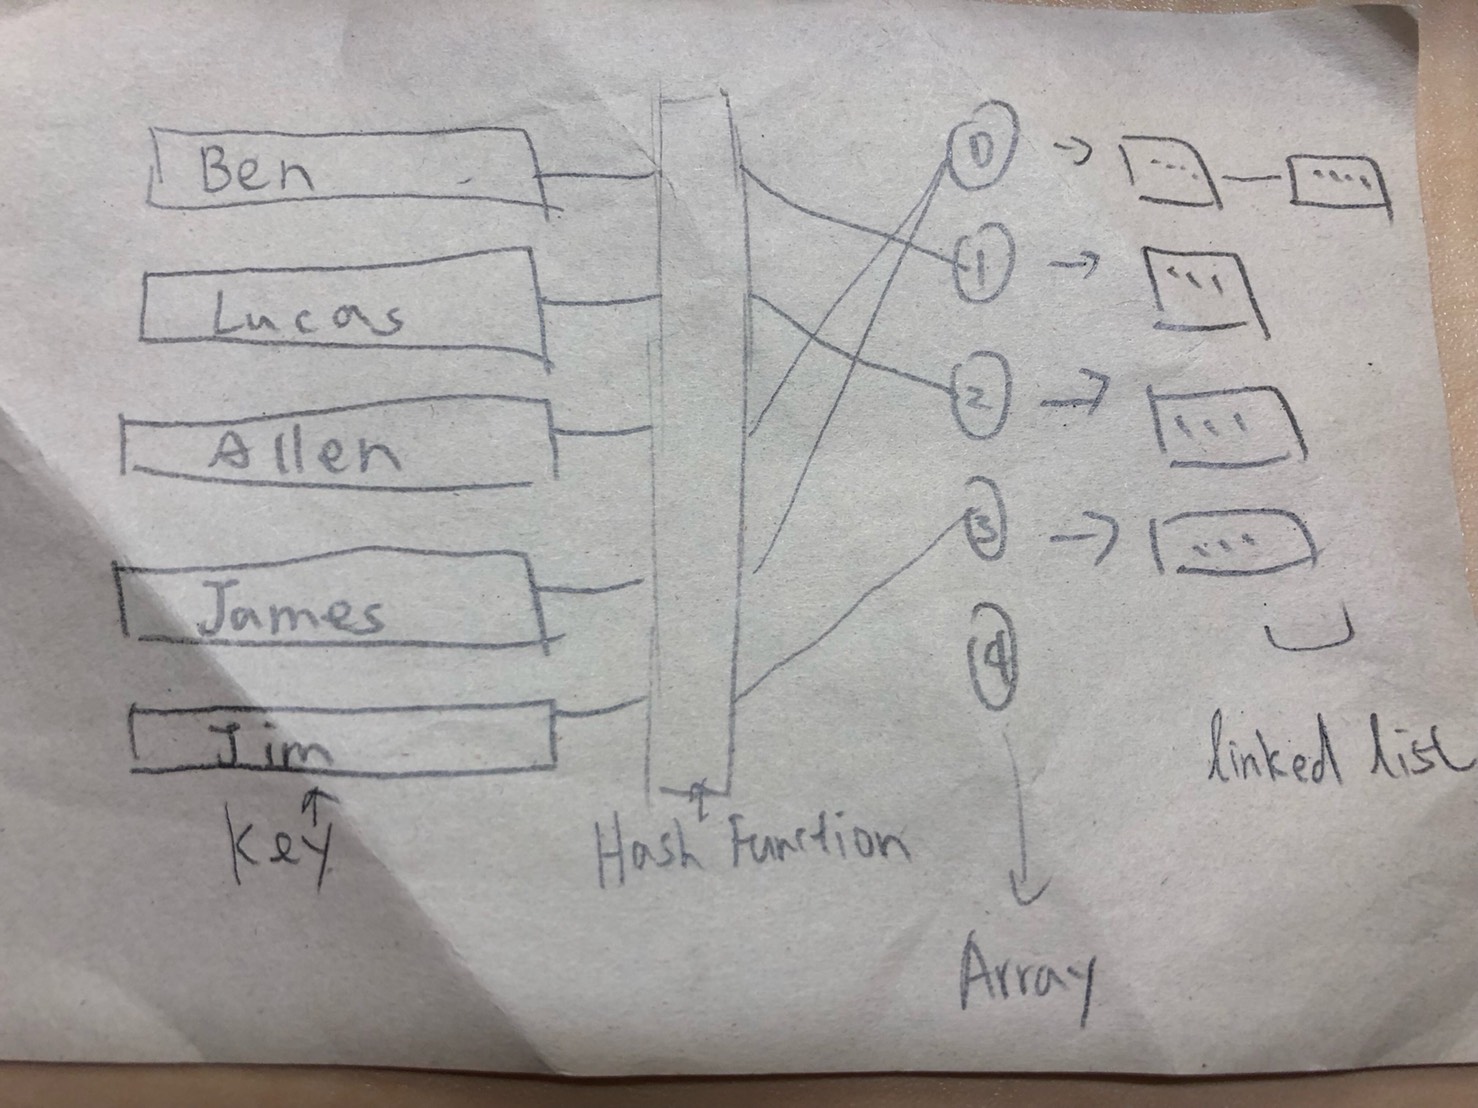 Ben
Lucas
Allen
James
Jim
key
Hash Function
0
1
2
3
4
Array
linked list